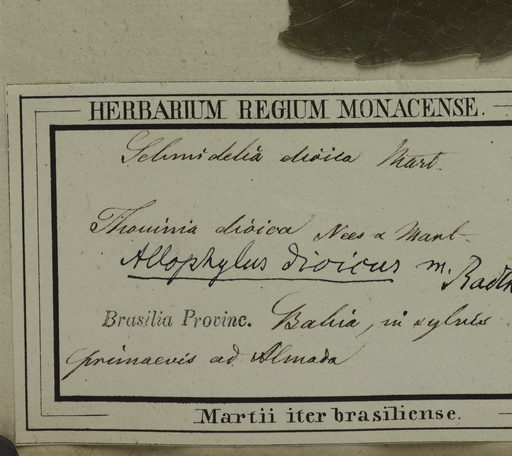 HERBARIUM REGIUM MONACENSE.
Schmidelia dioica Mart.
Thouinia dioica Nees & Mart
Allophylus dioicus m. Radlk
Brasilia Provinc. Bahia, in sylvis
primaevis ad Almada
Martii iter brasiliense.